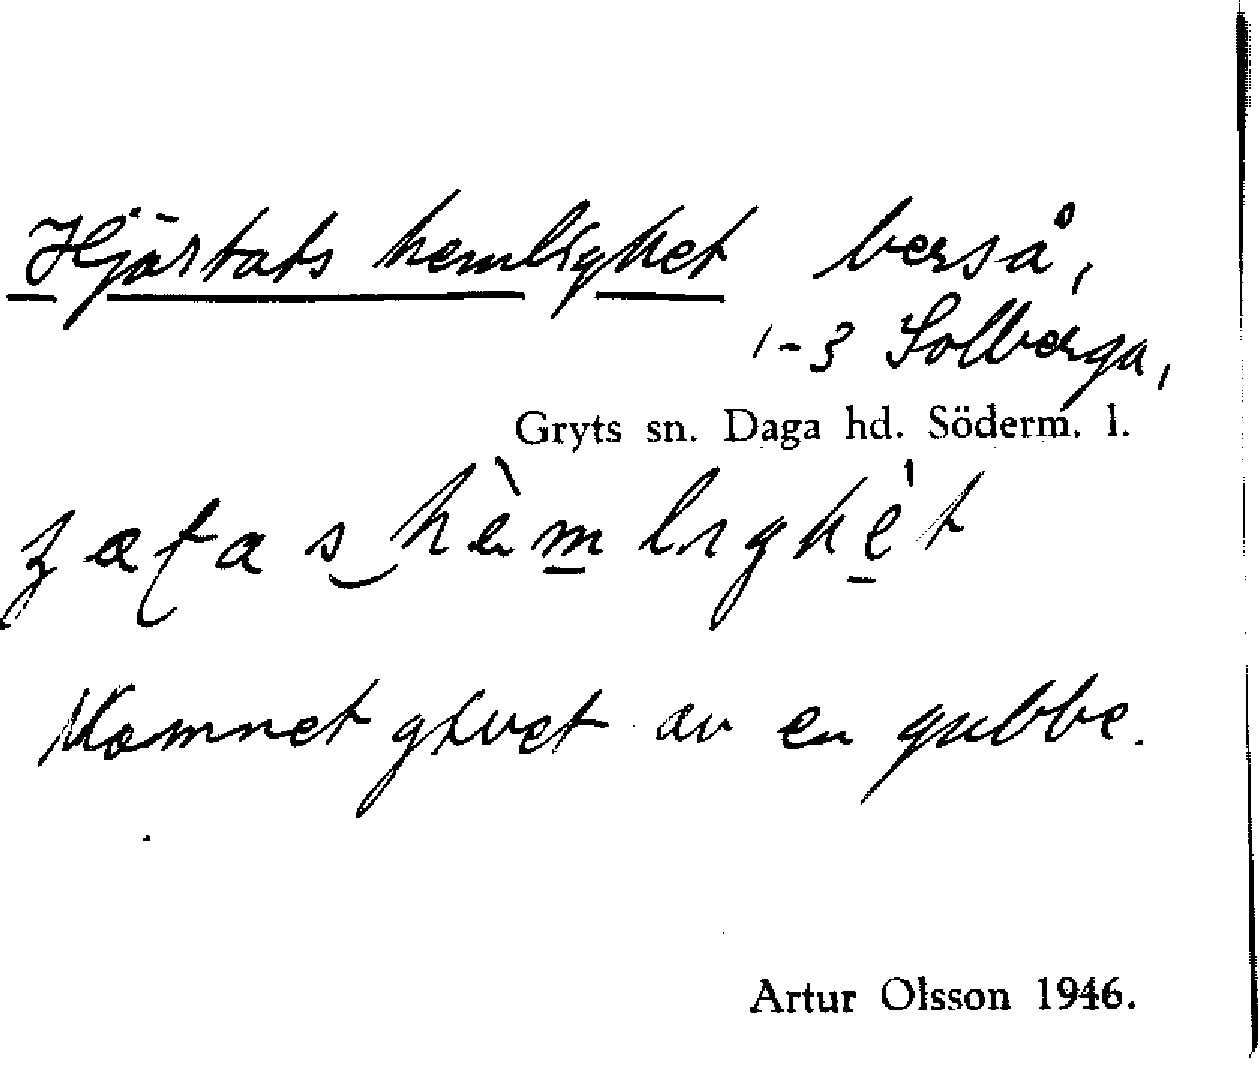 Hjärtats hemlighet berså,
1-3 Solberga,
Gryts sn. Daga hd. Söderm. l.
Namnet givet av en gubbe.
Artur Olsson 1946.